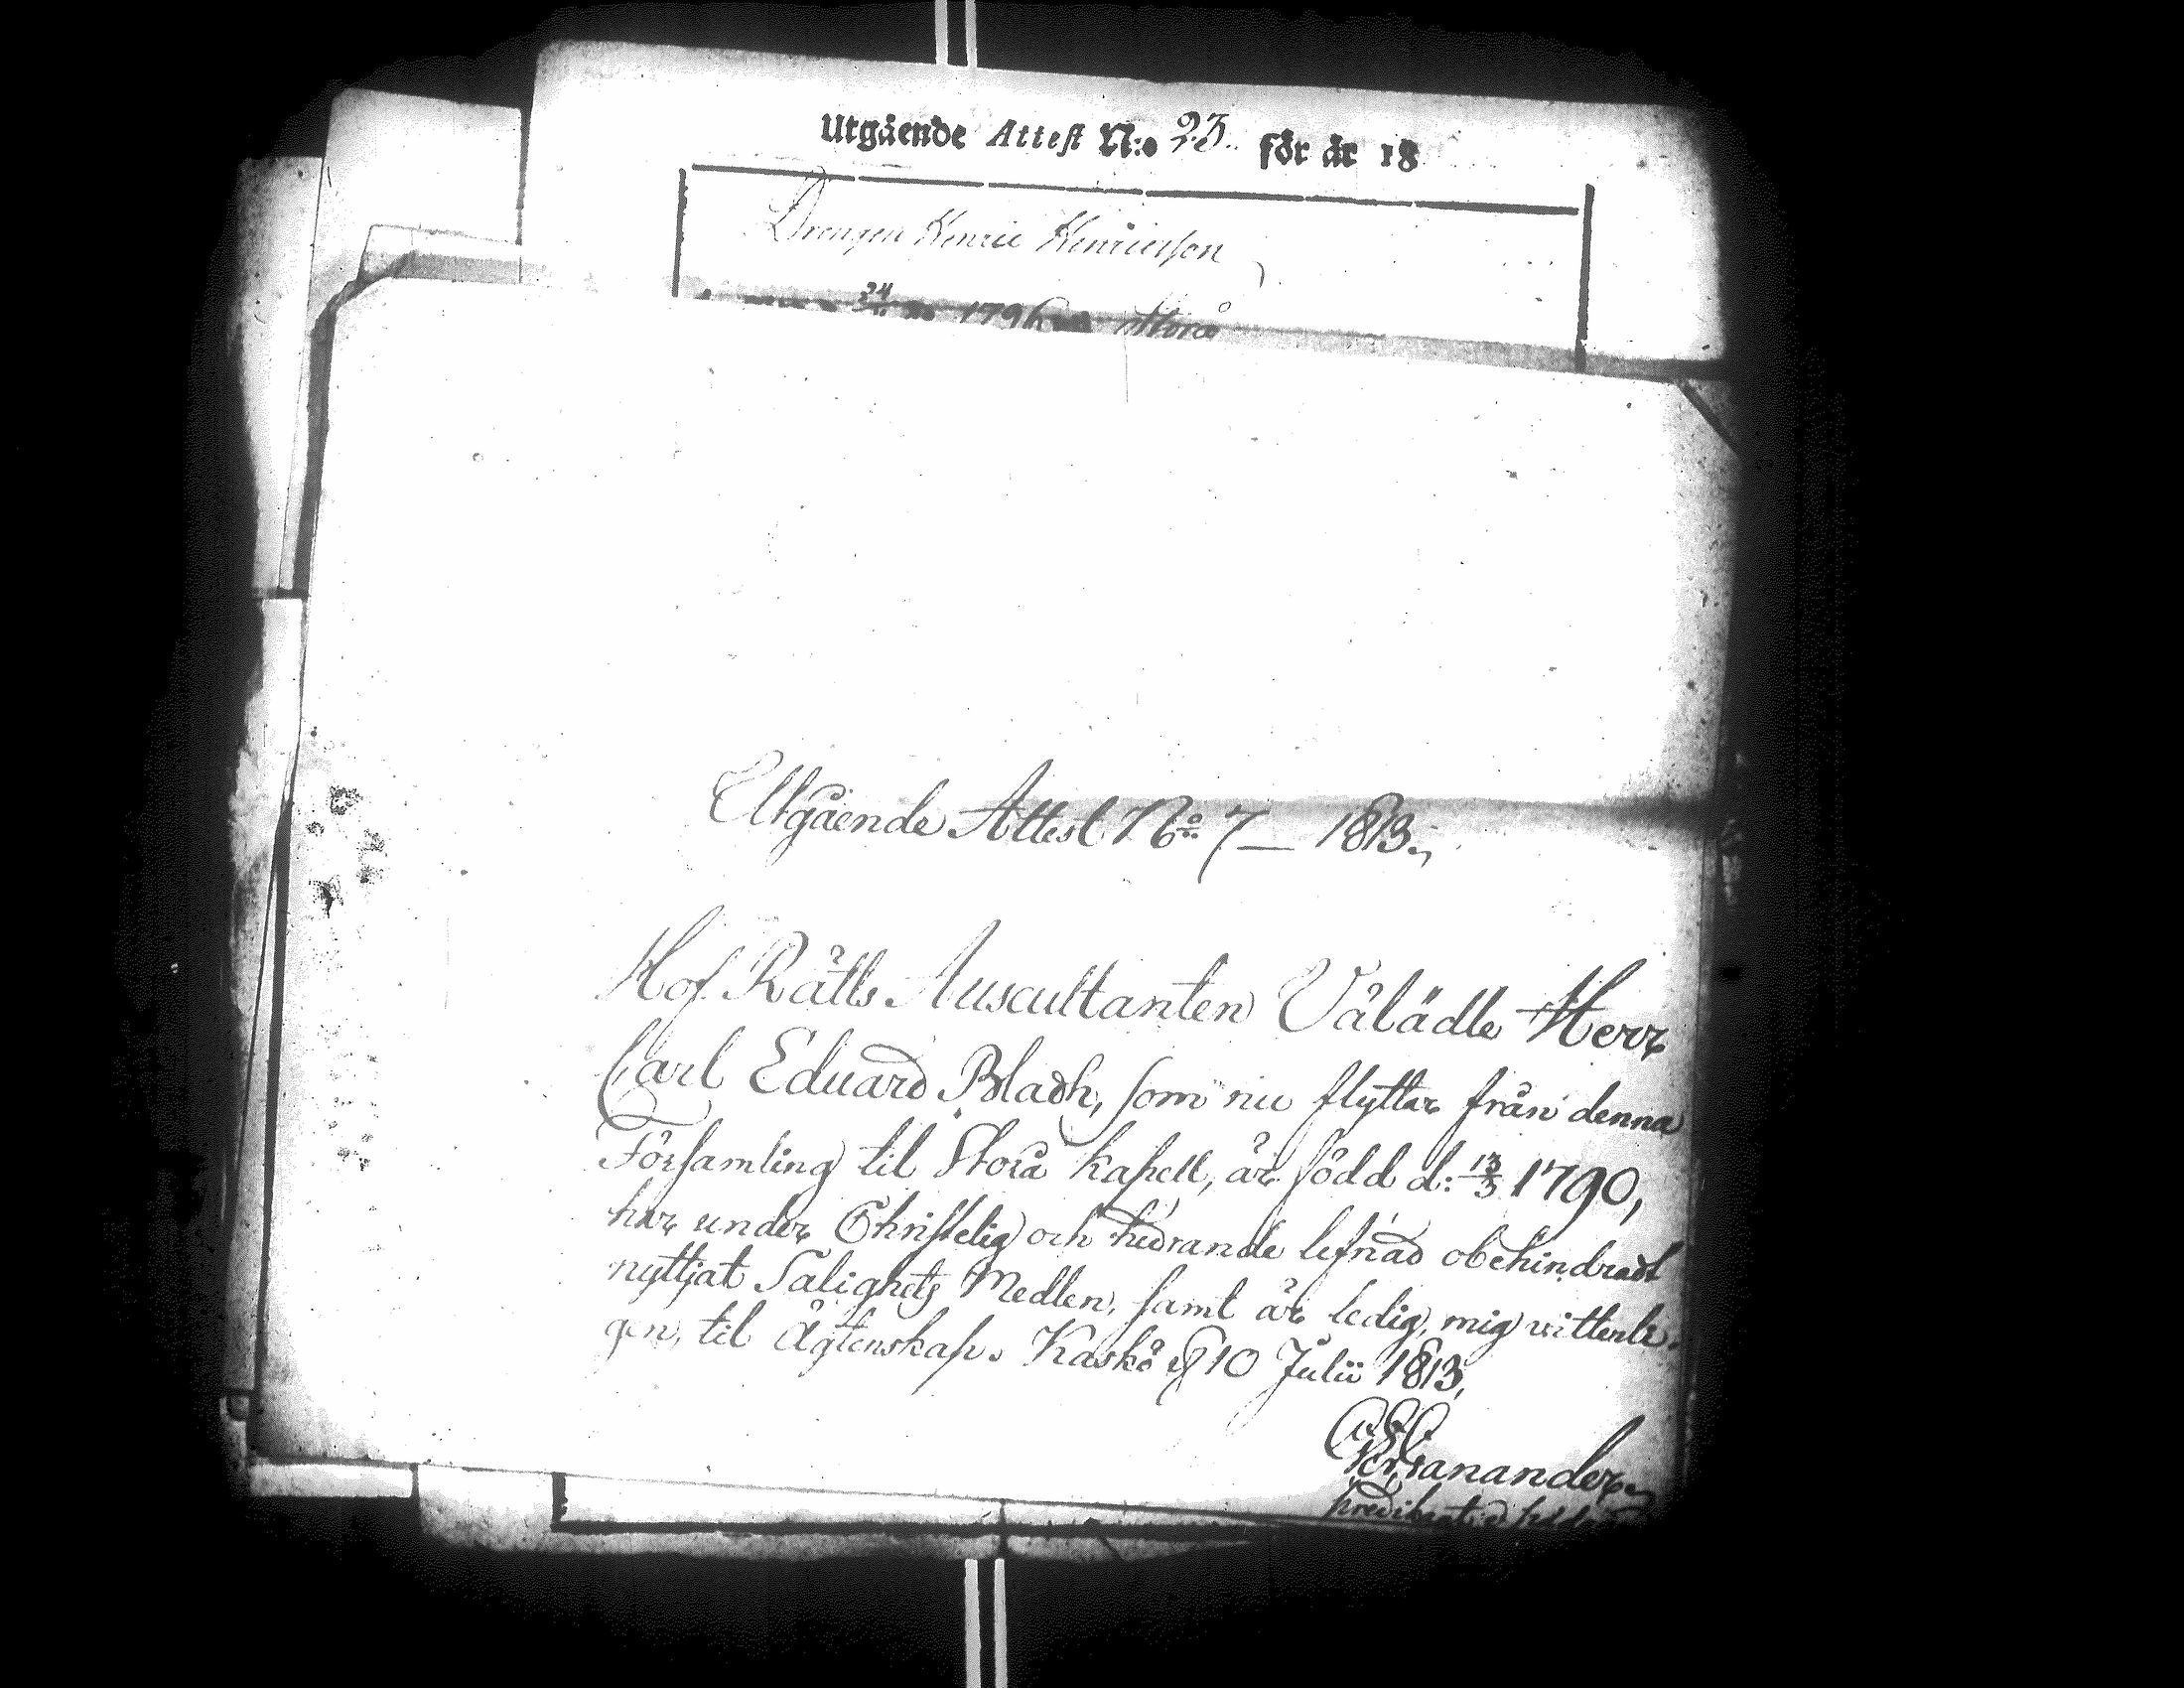 Utgående Attest N:o 23. för år 18
Drengen Henric Henricsson
24 1796 Storå
Utgående Attest No: 7 — 1813.,
Hof Rätts Auscultanten Välädle Herr
Carl Eduard Bladh, som nu flyttar från denna
Församling til Storå kapell, är född d: 13/3 1790,
har under Christelig och hedrande lefnad obehindradt
nyttjat Salighets Medlen, samt är ledig, mig vitterli-
gen, til Ägtenskap. Kaskö d 10 Julii 1813,